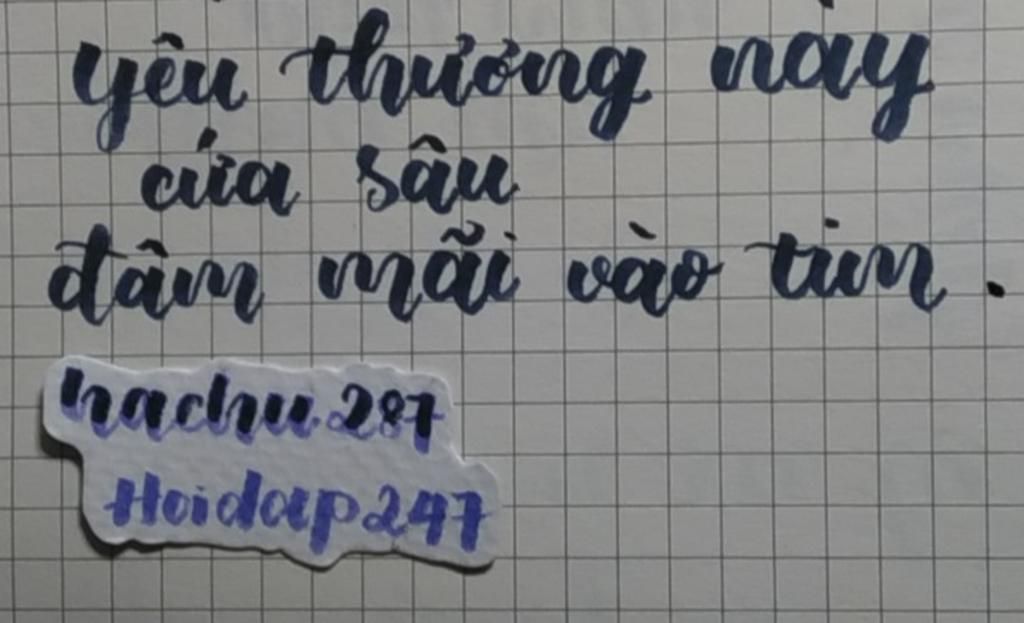 yêu thương này
cứa sâu
đâm mãi vào tim.
hachu287
Hoidap247